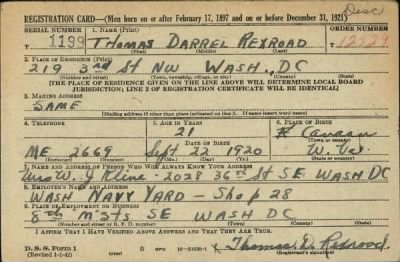 Disc
REGISTRATION CARD—(Men born on or after February 17, 1897 and on or before December 31, 1921)
SERIAL NUMBER 1. NAME (Print) ORDER NUMBER
1199 THOMAS DARREL REXROAD
2. PLACE OF RESIDENCE (Print)
219 3rd ST NW WASH., DC
(Number and street) (Town, township, village, or city) (County) (State)
[THE PLACE OF RESIDENCE GIVEN ON THE LINE ABOVE WILL DETERMINE LOCAL BOARD
JURISDICTION; LINE 2 OF REGISTRATION CERTIFICATE WILL BE IDENTICAL]
3. MAILING ADDRESS
SAME
[Mailing address if other than place indicated on line 2. If same insert word same]
4. TELEPHONE 5. AGE IN YEARS 6. PLACE OF BIRTH
21
DATE OF BIRTH
ME 2669 Sept 22 1920 W. Va.
(Exchange) (Number) (Mo.) (Day) (Yr.) (State or country)
7. NAME AND ADDRESS OF PERSON WHO WILL ALWAYS KNOW YOUR ADDRESS
Mrs W. J Kline - 2028 36th St SE WASH DC
8. EMPLOYER'S NAME AND ADDRESS
WASH NAVY YARD - Shop 28
9. PLACE OF EMPLOYMENT OR BUSINESS
8th M Sts SE WASH DC
(Number and street or R. F. D. number) (Town) (County) (State)
I AFFIRM THAT I HAVE VERIFIED ABOVE ANSWERS AND THAT THEY ARE TRUE.
D. S. S. Form 1
(Revised 1-1-42) GPO 16—21630-1 Thomas D. Rexroad
(Registrant's signature)